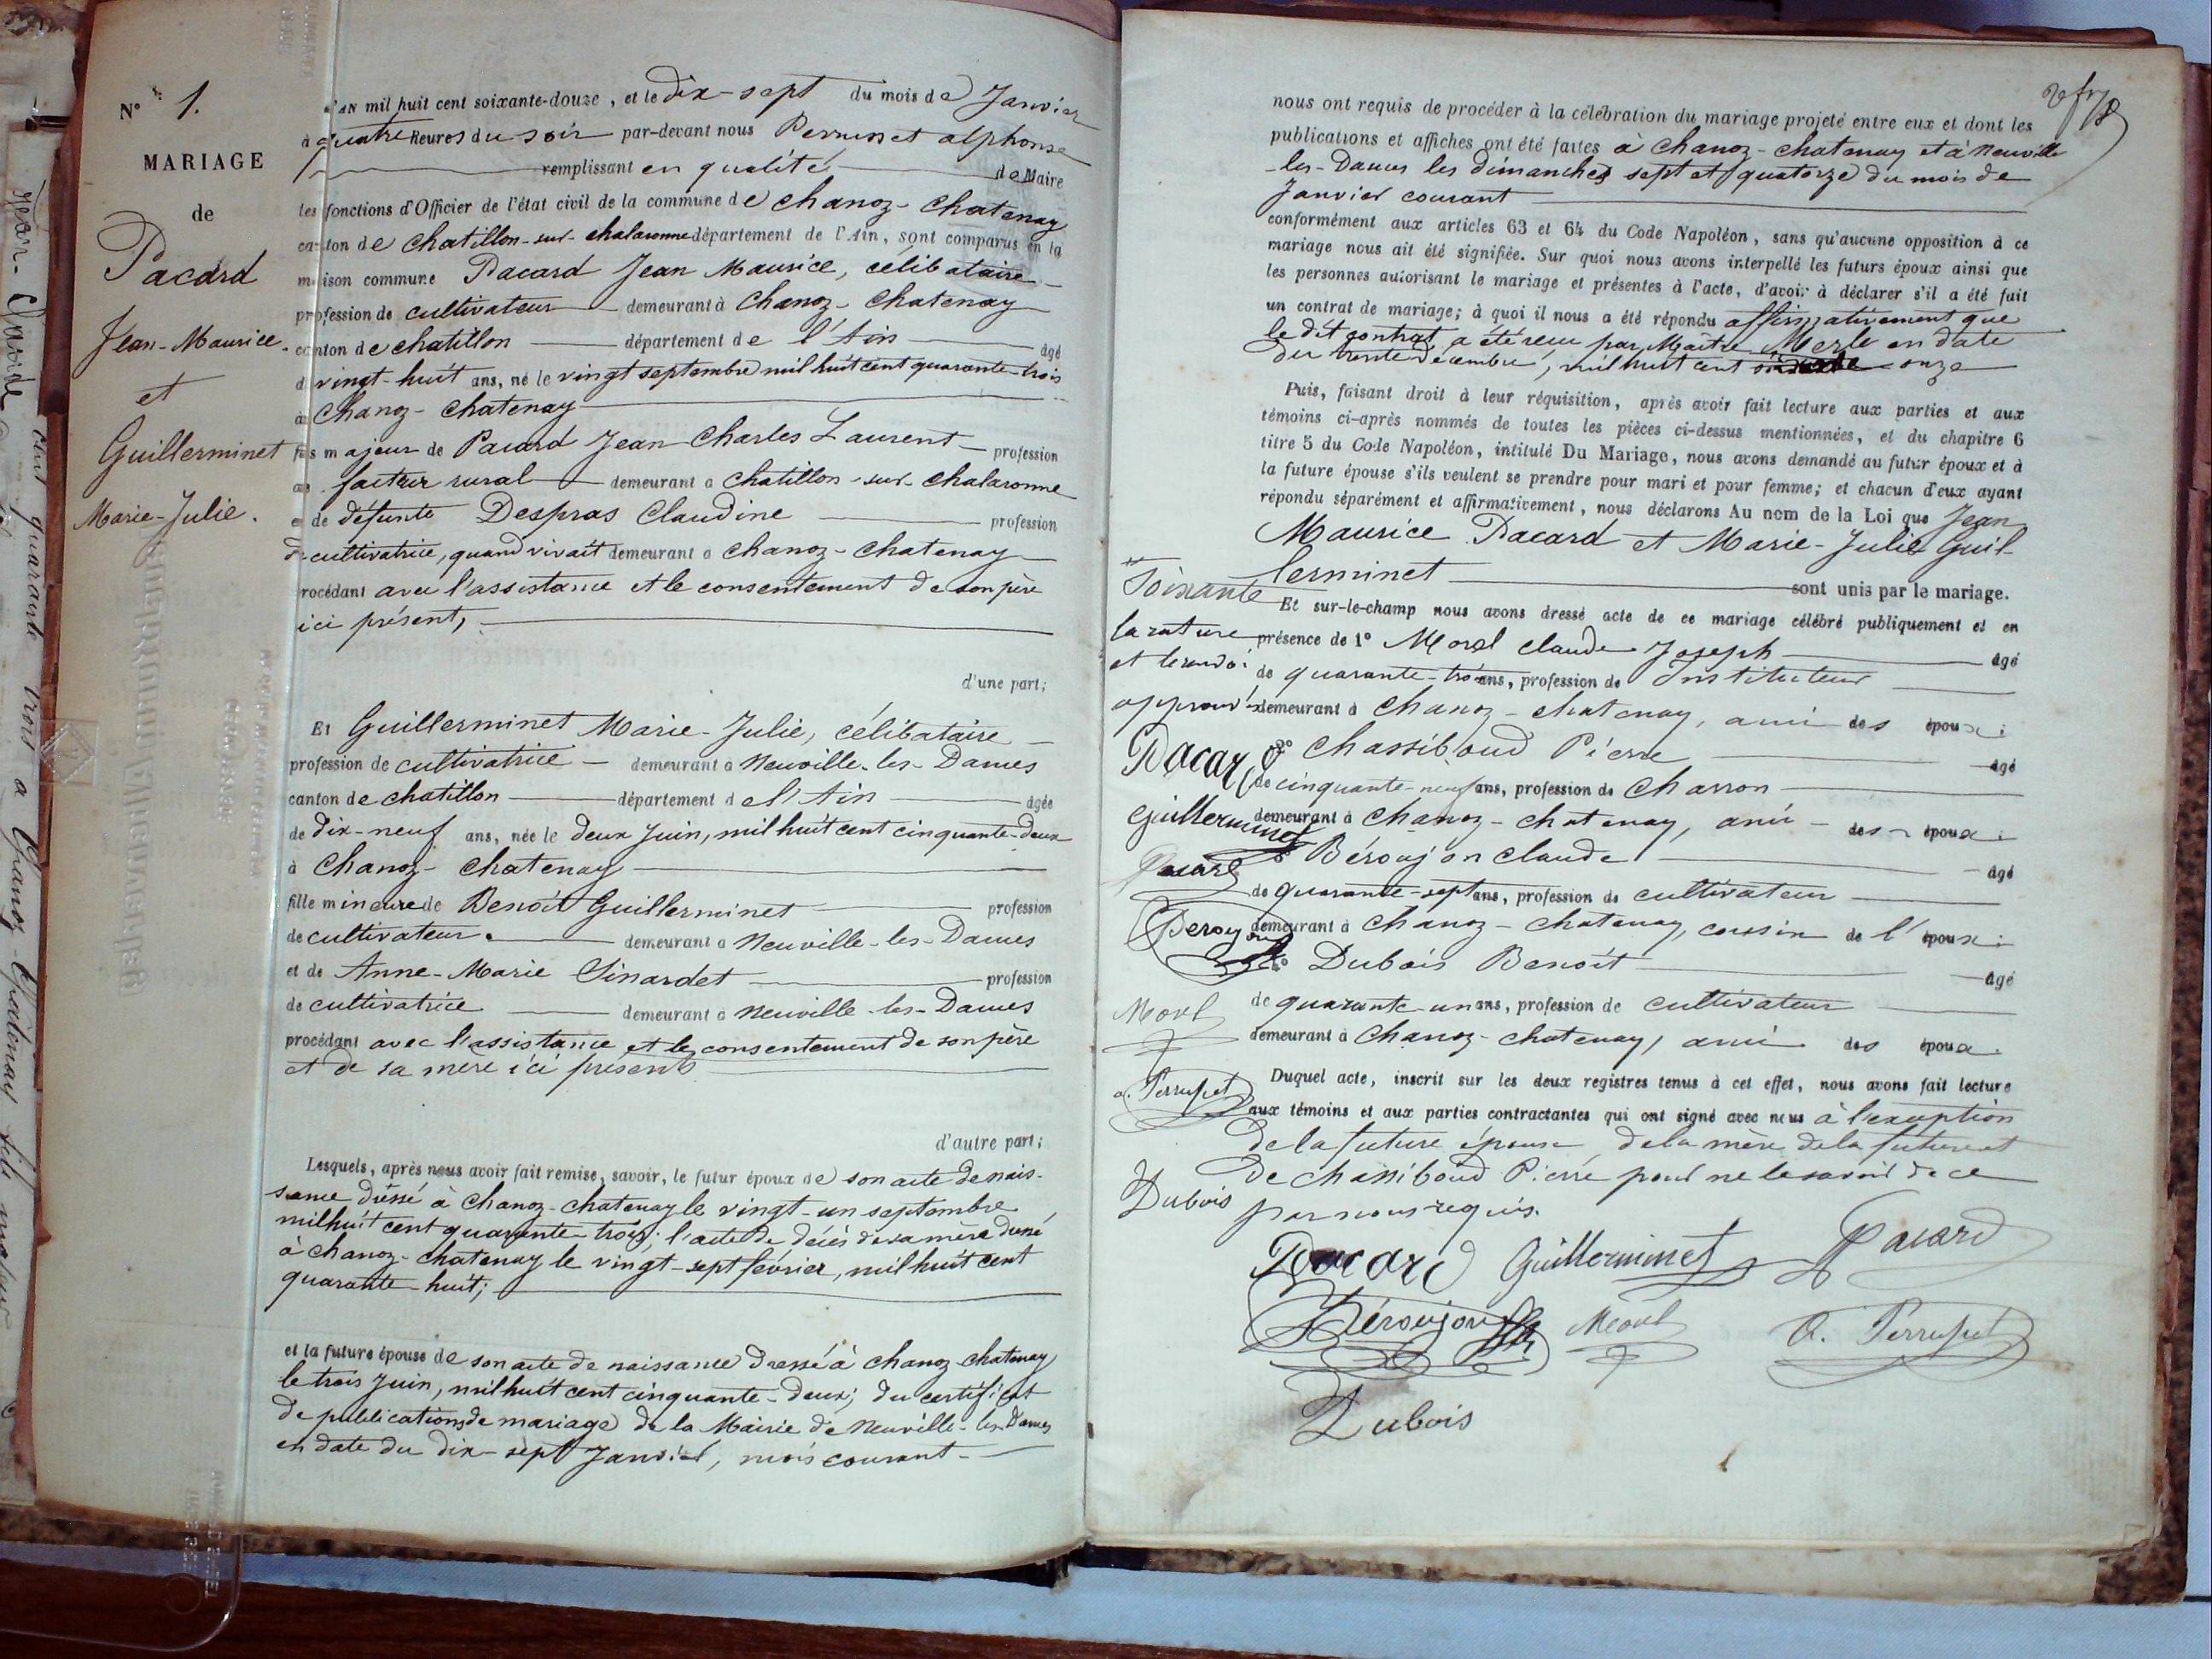 N° 1.
MARIAGE
de
Pacard
Jean-Maurice.
et
Guillerminet
Marie-Julie.
L'AN mil huit cent soixante-douze, et le dix-sept du mois de Janvier
à quatre heures du soir par-devant nous Perruset alphonse
remplissant en qualité de Maire
les fonctions d'Officier de l'état civil de la commune de Chanoz-Chatenay
canton de Chatillon-sur-chalaronne département de l'Ain, sont comparus en la
maison commune Pacard Jean Maurice, célibataire
profession de cultivateur demeurant à Chanoz-Chatenay
canton de chatillon département de l'Ain âgé
de vingt-huit ans, né le vingt septembre mil huit cent quarante-trois
à Chanoz-Chatenay
fils majeur de Pacard Jean Charles Laurent profession
de facteur rural demeurant à Chatillon-sur-Chalaronne
et de défunte Despras Claudine profession
de cultivatrice, quand vivait demeurant à Chanoz-Chatenay
procédant avec l'assistance et le consentement de son père
ici présent,
d'une part;
Et Guillerminet Marie-Julie, célibataire
profession de cultivatrice demeurant à Neuville-les-Dames
canton de chatillon département de l'Ain âgée
de dix-neuf ans, née le deux Juin, mil huit cent cinquante-deux
à Chanoz-Chatenay
fille mineure de Benoit Guillerminet profession
de cultivateur. demeurant à Neuville-les-Dames
et de Anne-Marie Sinardet profession
de cultivatrice demeurant à Neuville-les-Dames
procédant avec l'assistance et le consentement de son père
et de sa mère ici présents
d'autre part;
Lesquels, après nous avoir fait remise, savoir, le futur époux de son acte de nais-
sance dressé à Chanoz-Chatenay le vingt-un septembre
mil huit cent quarante-trois; l'acte de décès de sa mère
à Chanoz-Chatenay le vingt-sept février, mil huit cent
quarante-huit;
et la future épouse de son acte de naissance dressé à Chanoz Chatenay
le trois Juin, mil huit cent cinquante-deux; du certificat
de publications de mariage de la Mairie de Neuville-les-Dames
en date du dix-sept Janvier, mois courant
nous ont requis de procéder à la célébration du mariage projeté entre eux et dont les
publications et affiches ont été faites à Chanoz-Chatenay et à Neuville
-les-Dames les dimanches sept et quatorze du mois de
Janvier courant
conformément aux articles 63 et 64 du Code Napoléon, sans qu'aucune opposition à ce
mariage nous ait été signifiée. Sur quoi nous avons interpellé les futurs époux ainsi que
les personnes autorisant le mariage et présentes à l'acte, d'avoir à déclarer s'il a été fait
un contrat de mariage; à quoi il nous a été répondu affirmativement que
le dit contrat a été reçu par Maître Merle en date
du trente décembre, mil huit cent onze
Puis, faisant droit à leur réquisition, après avoir fait lecture aux parties et aux
témoins ci-après nommés de toutes les pièces ci-dessus mentionnées, et du chapitre 6
titre 5 du Code Napoléon, intitulé Du Mariage, nous avons demandé au futur époux et à
la future épouse s'ils veulent se prendre pour mari et pour femme; et chacun d'eux ayant
répondu séparément et affirmativement, nous déclarons Au nom de la Loi que Jean
Maurice Pacard et Marie-Julie Guil-
lerminet sont unis par le mariage.
Et sur-le-champ nous avons dressé acte de ce mariage célébré publiquement et en
présence de 1° Morel Claude Joseph âgé
de quarante-trois ans, profession de Instituteur
demeurant à Chanoz-chatenay, ami des époux;
2° Chassiboud Pierre âgé
de cinquante-neuf ans, profession de Charron
demeurant à Chanoz-chatenay, ami des époux;
3° Béroujon Claude âgé
de quarante-sept ans, profession de cultivateur
demeurant à Chanoz-Chatenay, cousin de l'époux;
4° Dubois Benoit âgé
de quarante-un ans, profession de cultivateur
demeurant à Chanoz-chatenay, ami des époux.
Duquel acte, inscrit sur les deux registres tenus à cet effet, nous avons fait lecture
aux témoins et aux parties contractantes qui ont signé avec nous à l'exception
de la future épouse de la mère de la future et
de Chassiboud Pierre pour ne le savoir de ce
par nous requis.
Soixante
la rature
et le renvoi
approuvés
Pacard
Guillerminet
Pacard
Beroujon
Morel
a. Perruset
Dubois
Pacard Guillerminet Pacard
Béroujon Morel A. Perruset
Dubois